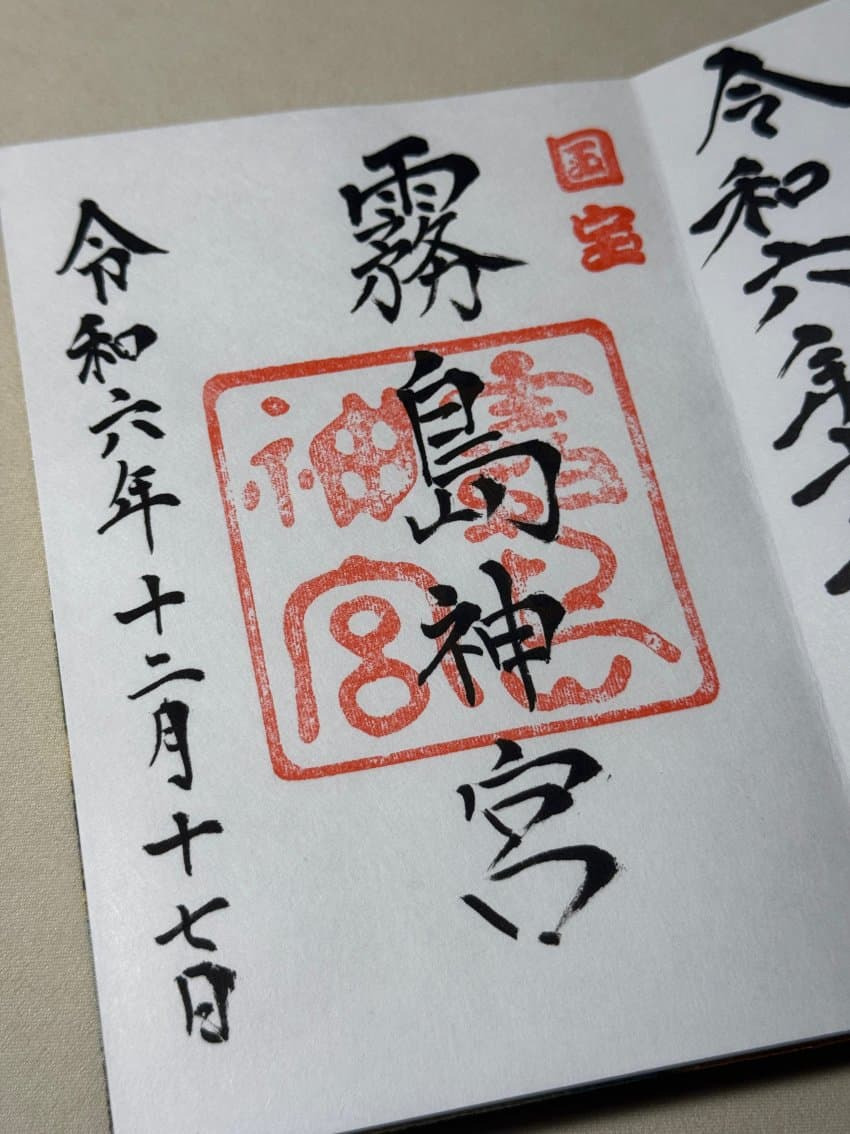 令和六年
国宝
霧島神宮
霧島神宮
令和六年十二月十七日